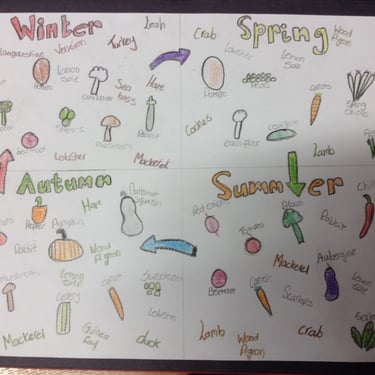 Winter
Leah
Langoustine
Venison
Turkey
Potato
Lemon
Sole
Cauliflower
Sea
Bass
Hare
Mushroom
Parsnip
Beetroot
Lobster
Mackerel
Spring
Crab
Lobster
Lemon
Sole
Wood
Pigeon
Potato
Peas
Carrots
Spring
Onions
Cockles
Cauliflower
Lamb
Autumn
Pepper
Pumpkin
Hare
Butternut
Squash
Rabbit
Wood
Pigeon
Mushroom
Lemon
Sole
Carrot
Sweetcorn
Celery
Lobster
Mackerel
Guinea
Fowl
duck
Summer
Tomato
Rabbit
Mackerel
Aubergine
Beetroot
Carrot
Scallops
Lemon
Sole
Lamb
Wood
Pigeon
Crab